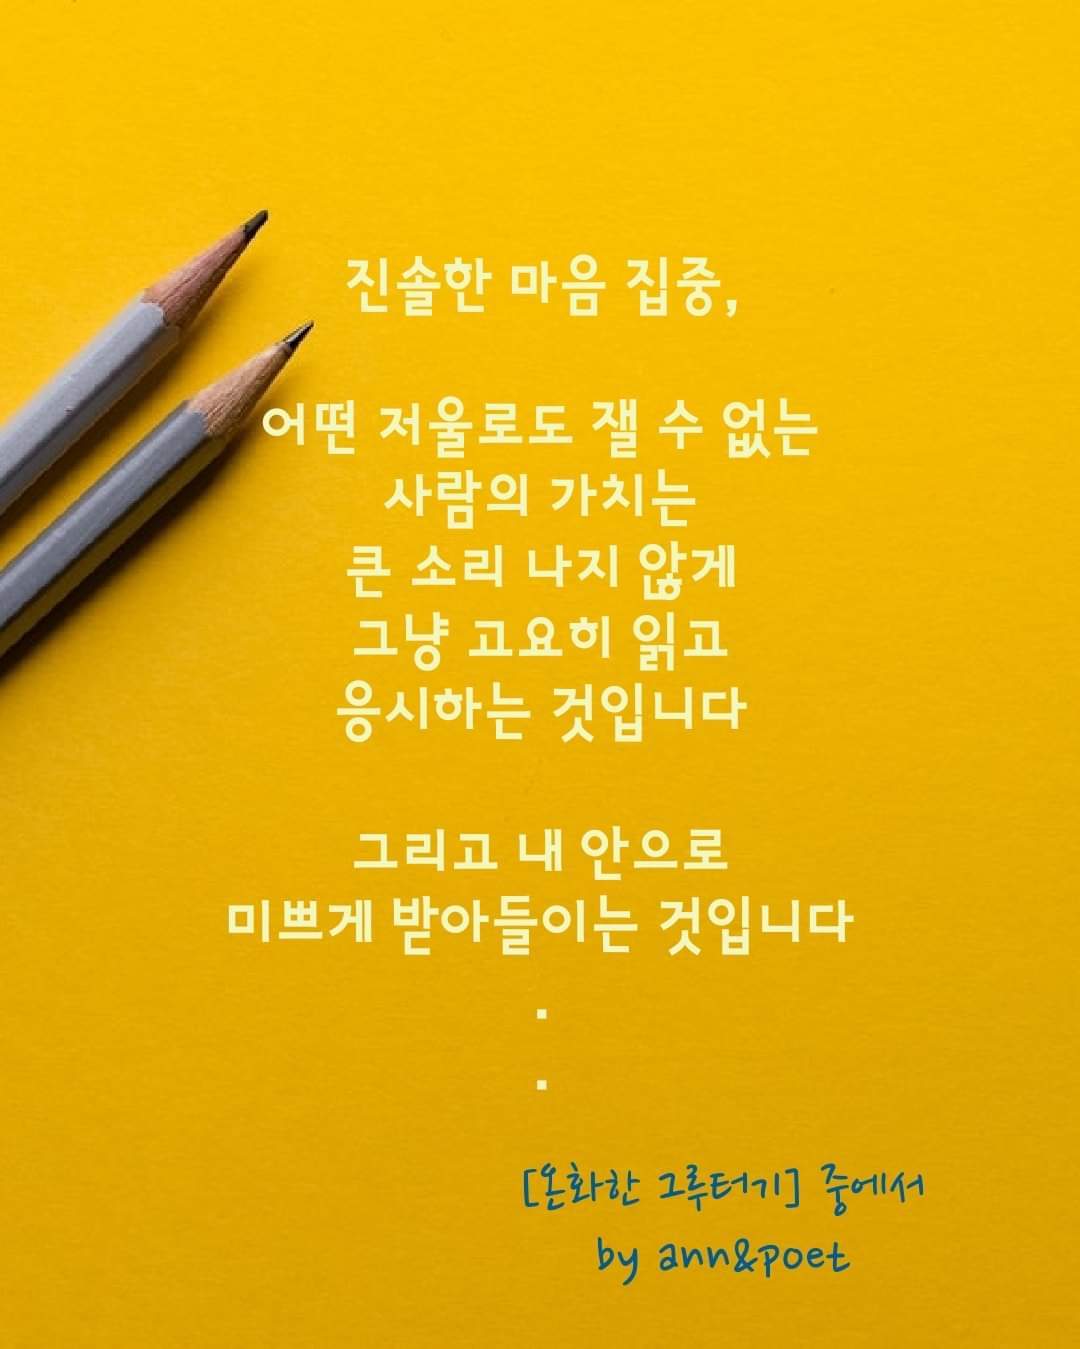 진솔한 마음 집중,
어떤 저울로도 잴 수 없는
사람의 가치는
큰 소리 나지 않게
그냥 고요히 읽고
응시하는 것입니다
그리고 내 안으로
미쁘게 받아들이는 것입니다
.
.
[온화한 그루터기] 중에서
by ann&poet